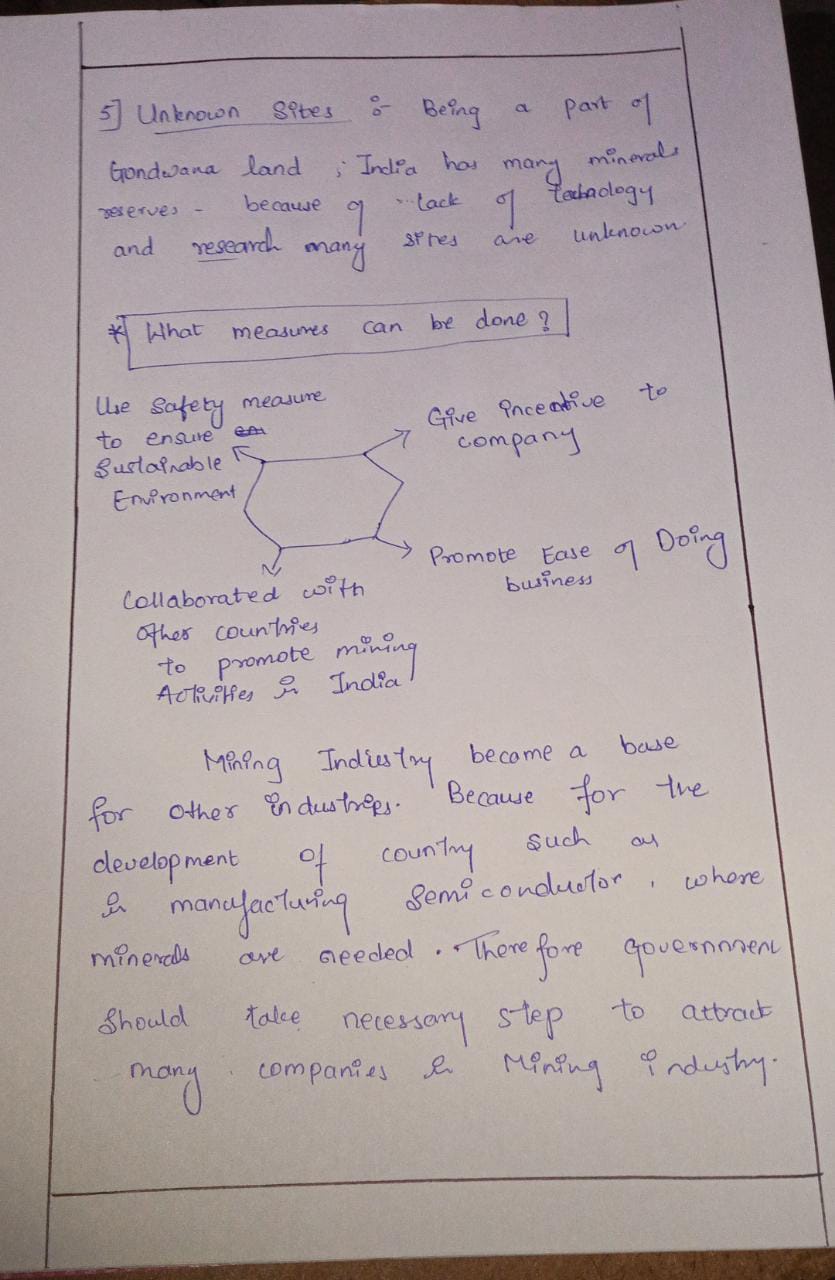 5] Unknown Sites :- Being a part of
Gondwana land ; India has many minerals
reserves - because of lack of technology
and research many sites are unknown
* What measures can be done ?
Use Safety measure
to ensure
Sustainable
Environment
Give incentive to
company
Promote Ease of Doing
business
Collaborated with
other countries
to promote mining
Activities in India
Mining Industry became a base
for other industries. Because for the
development of country such as
in manufacturing Semiconductor, where
minerals are needed. Therefore government
Should take necessary step to attract
many companies in Mining industry.